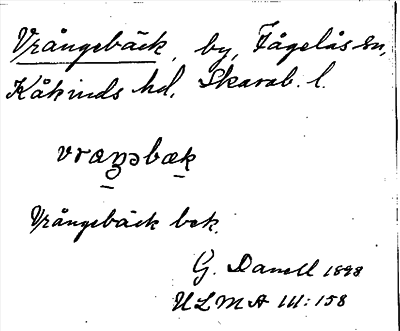 Vrångebäck, by, Fågelås sn,
Kåkinds hd, Skarab. l.
vraŋəbæk
Vrångebäck bek.
G. Danell 1898
ULMA 111:158